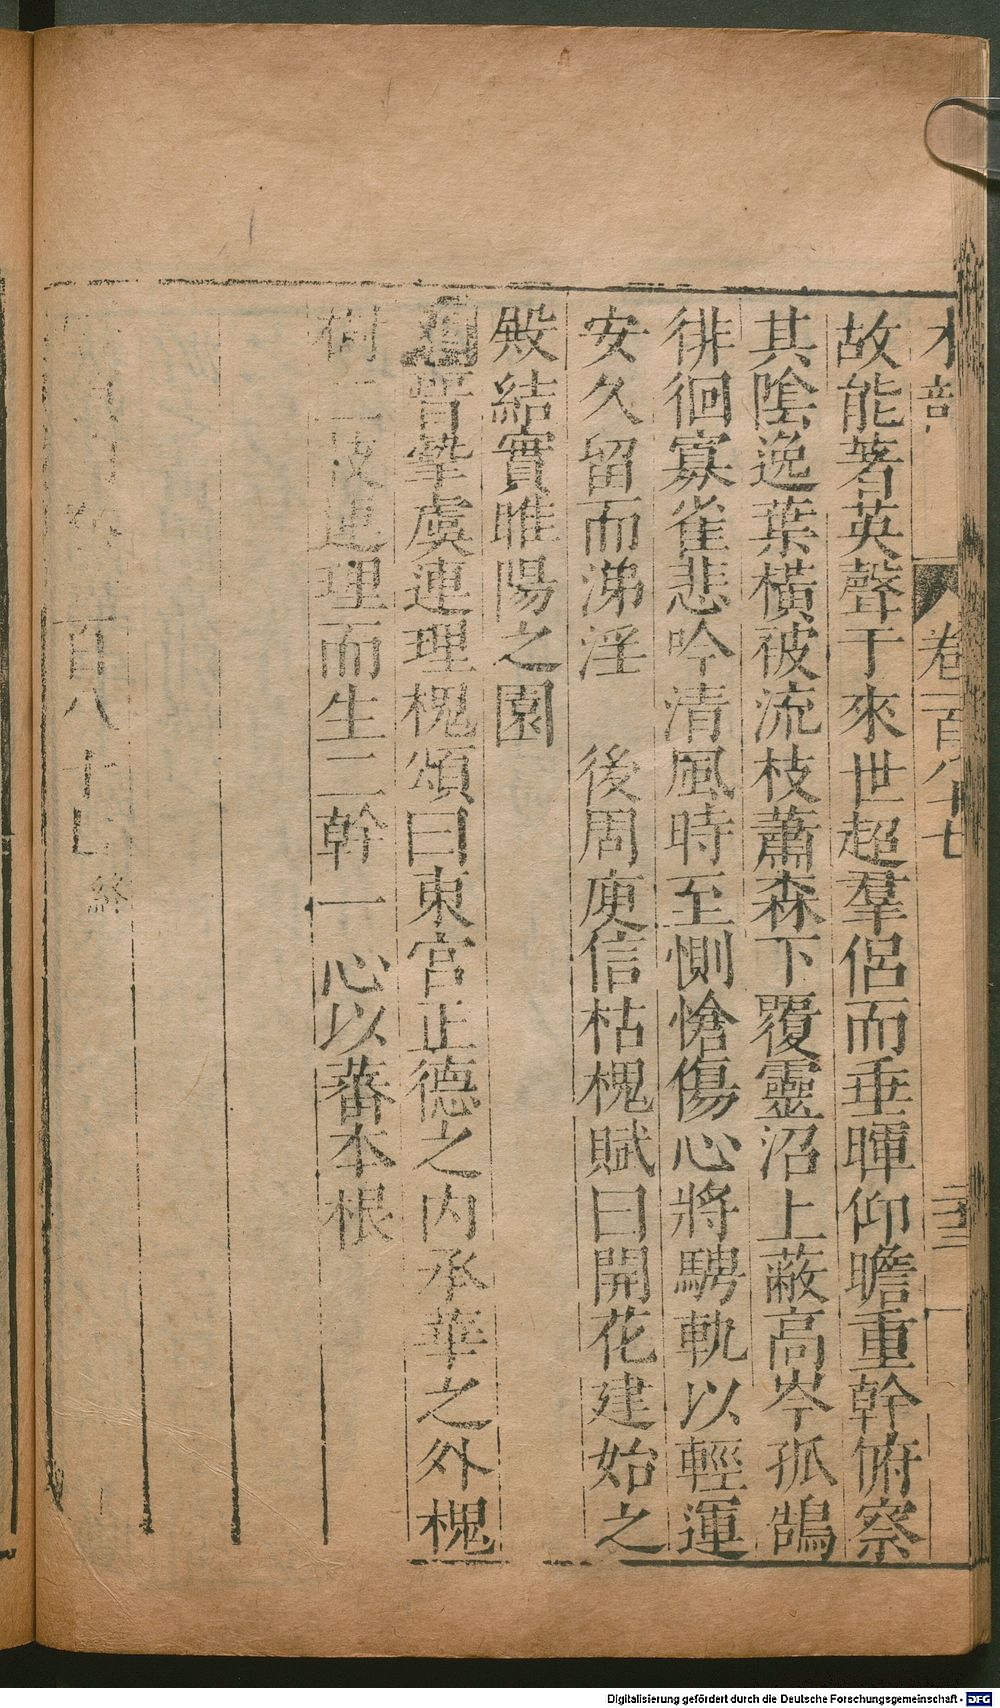 木部 卷一百八十七 三十三
故能著英聲于來世超羣侣而垂暉仰瞻重幹俯察
其陰逸葉橫被流枝蕭森下覆靈沼上蔽高岑孤鵠
徘徊寡雀悲吟清風時至惻愴傷心將騁軌以輕運
安久留而涕淫 後周庾信枯槐賦曰開花建始之
殿結實睢陽之園
晉摯虞連理槐頌曰東宮正德之内承華之外槐
樹二枝連理而生二幹一心以蕃本根
百八十七終
Digitalisierung gefördert durch die Deutsche Forschungsgemeinschaft - DFG